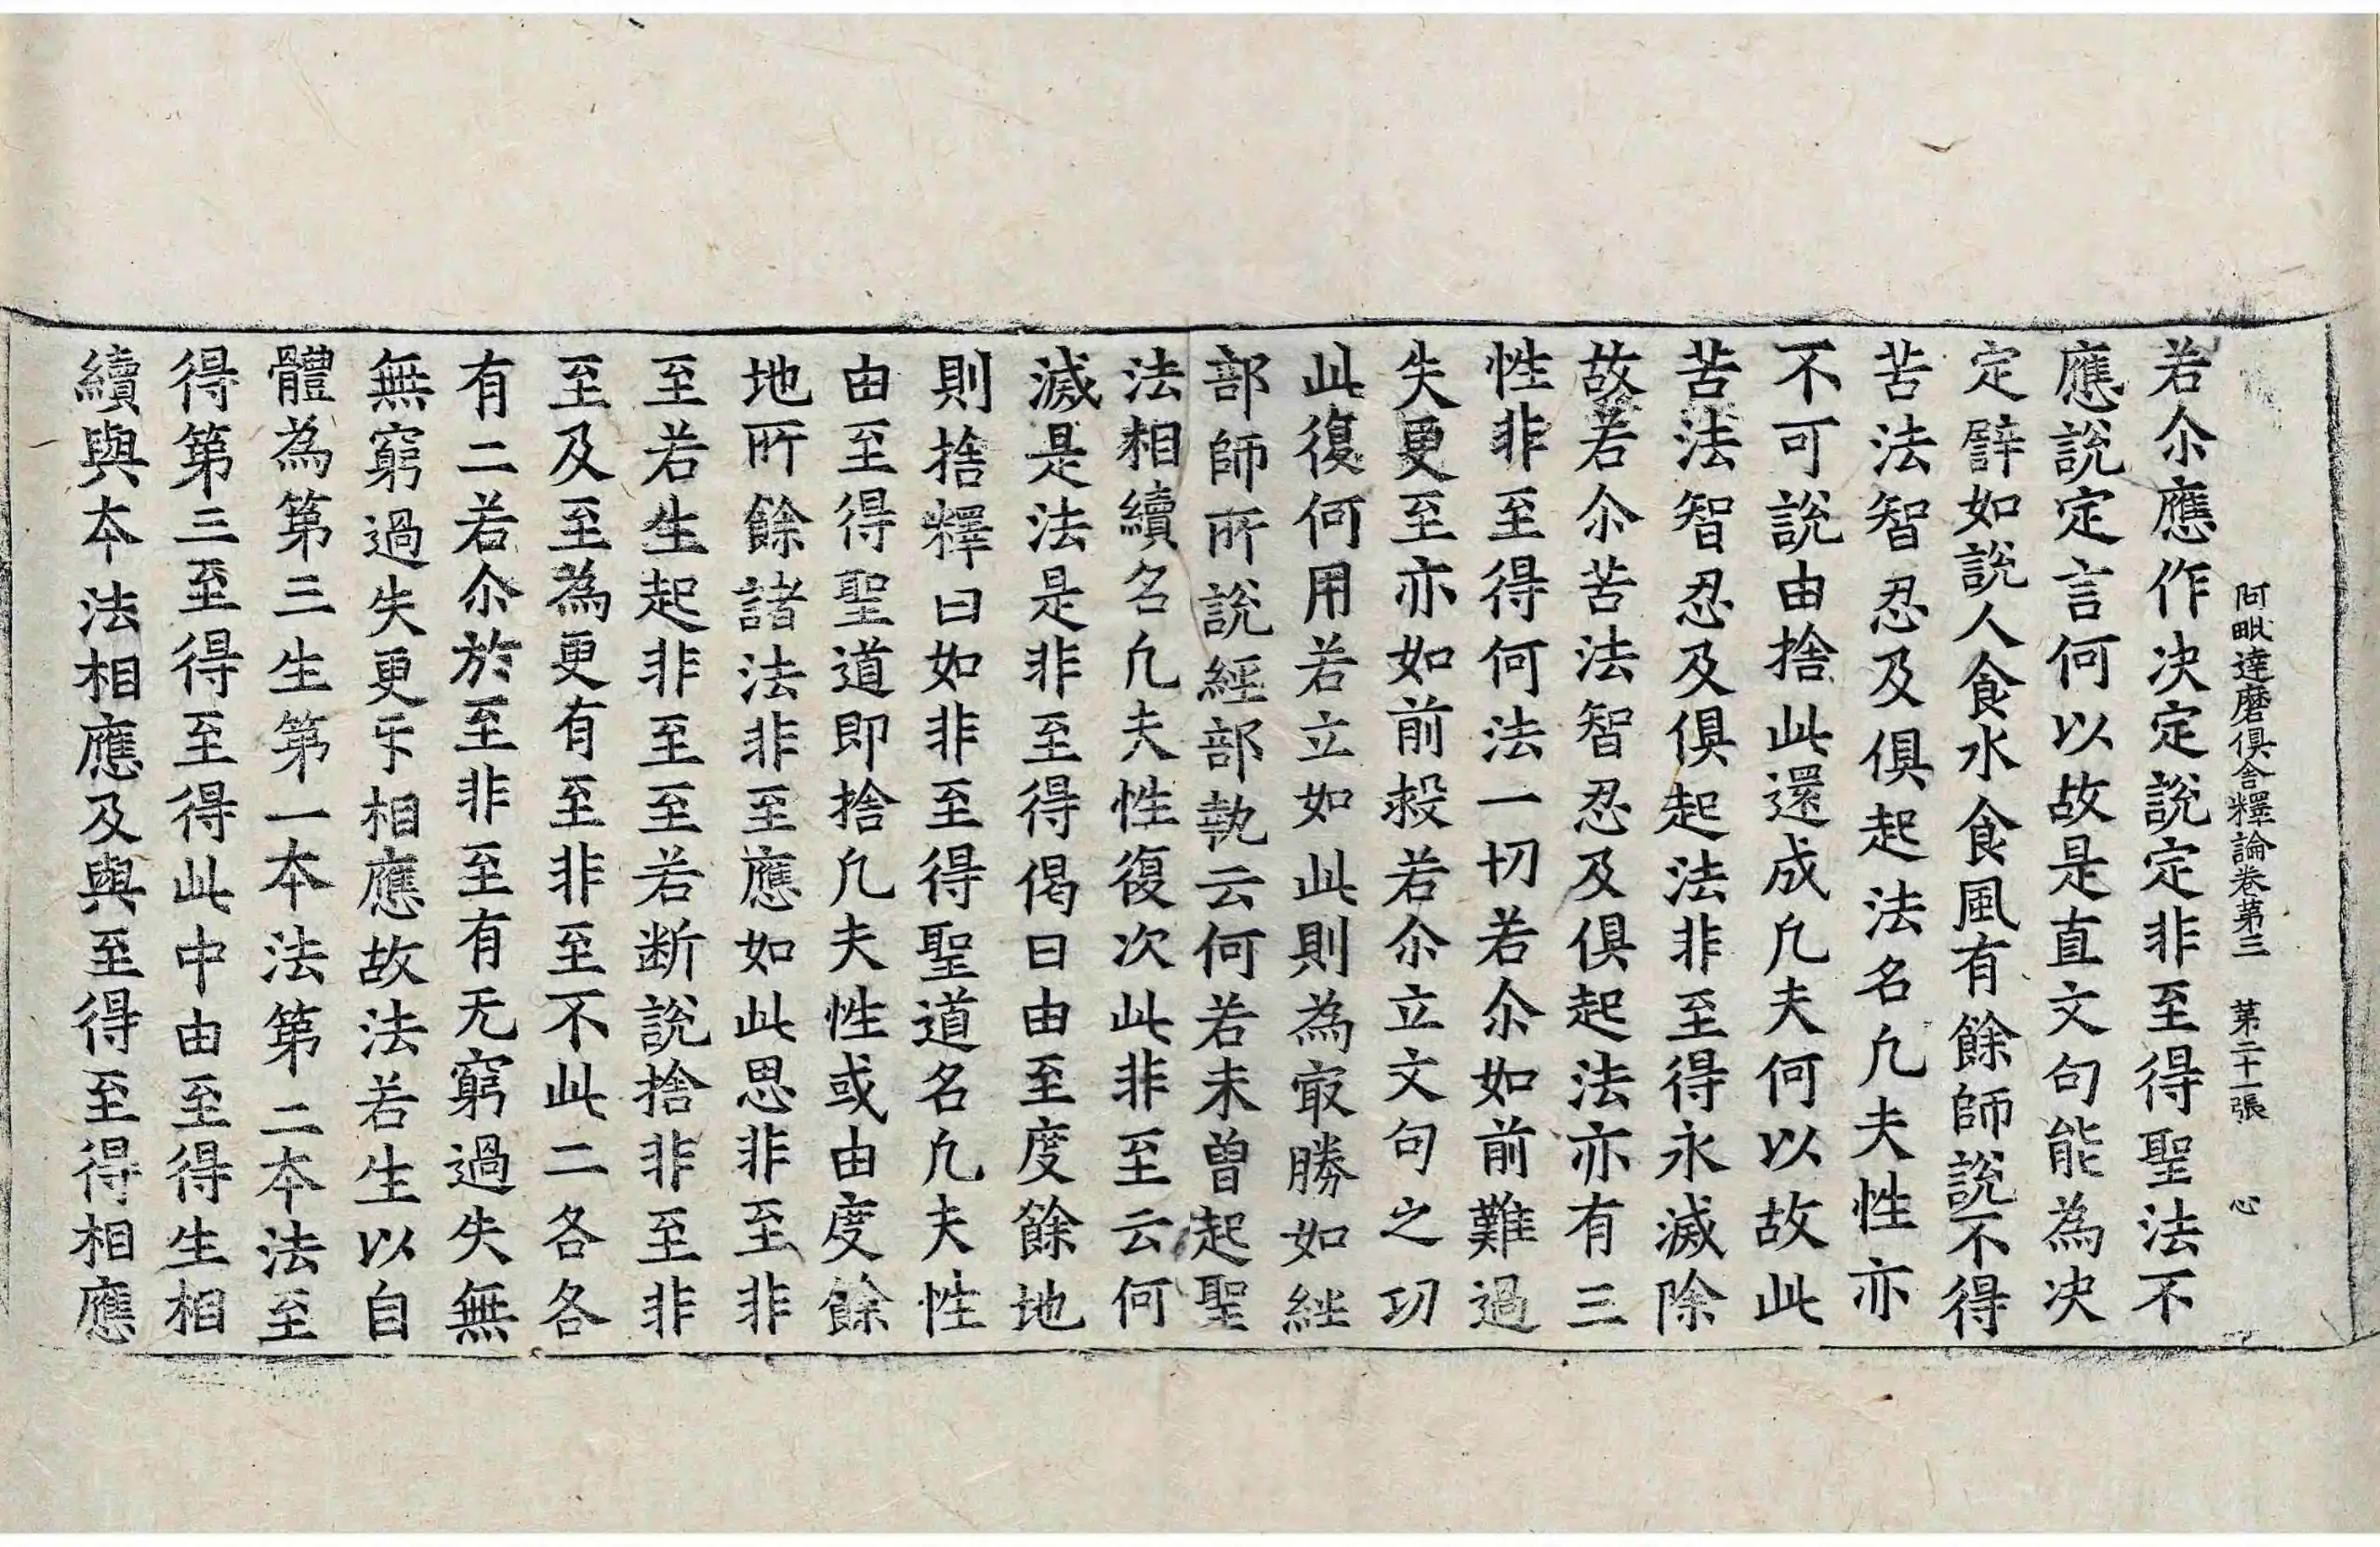 阿毗達磨俱舍釋論卷第三　第二十一張　心
若尒應作决定說定非至得聖法不
應說定言何以故是直文句能為决
定譬如說人食水食風有餘師說不得
苦法智忍及俱起法名凢夫性亦
不可說由捨此還成凢夫何以故此
苦法智忍及俱起法非至得永滅除
故若尒苦法智忍及俱起法亦有三
性非至得何法一切若尒如前難過
失更至亦如前救若尒立文句之功
此復何用若立如此則為㝡勝如經
部師所說經部執云何若未曾起聖
法相續名凢夫性復次此非至云何
滅是法是非至得偈曰由至度餘地
則捨釋曰如非至得聖道名凢夫性
由至得聖道即捨凢夫性或由度餘
地所餘諸法非至應如此思非至非
至若生起非至至若断說捨非至非
至及至為更有至非至不此二各各
有二若尒於至非至有无窮過失無
無窮過失更㸦相應故法若生以自
體為第三生第一本法第二本法至
得第三至得至得此中由至得生相
續與本法相應及與至得至得相應